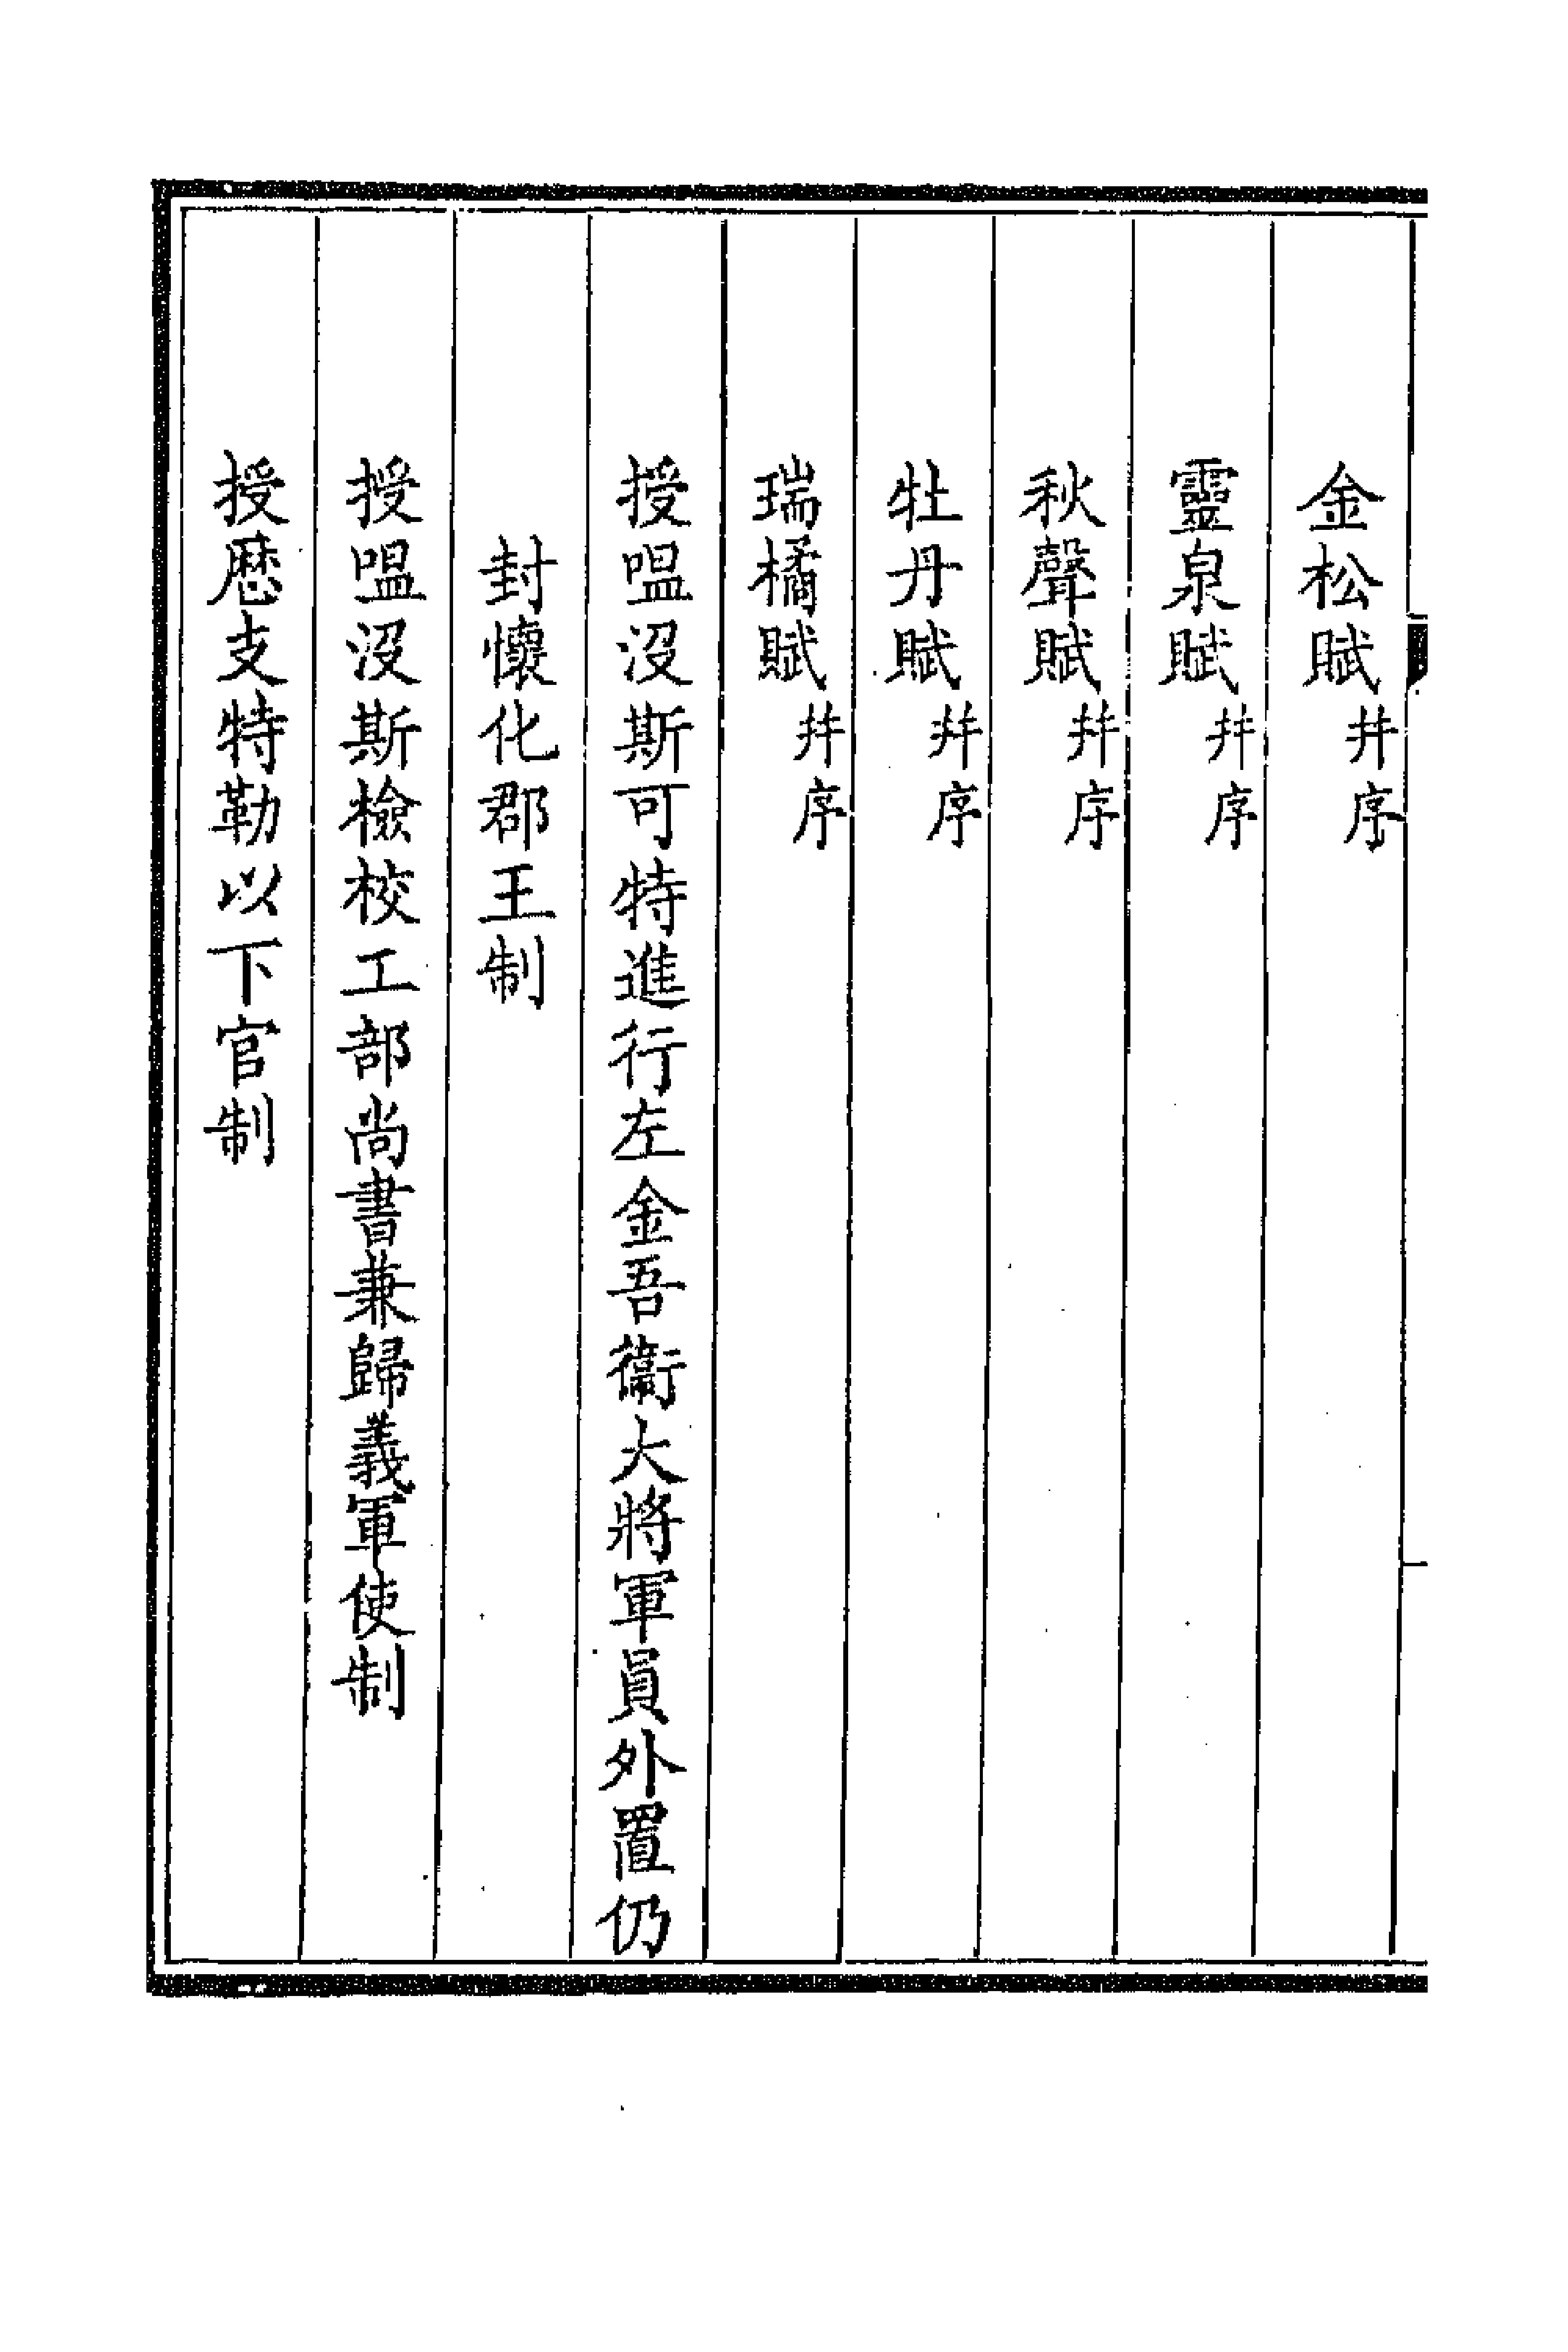 金松賦幷序
靈泉賦幷序
秋聲賦幷序
牡丹賦幷序
瑞橘賦幷序
授嗢沒斯可特進行左金吾衞大將軍員外置仍
封懷化郡王制
授嗢沒斯檢校工部尚書兼歸義軍使制
授歷支特勒以下官制